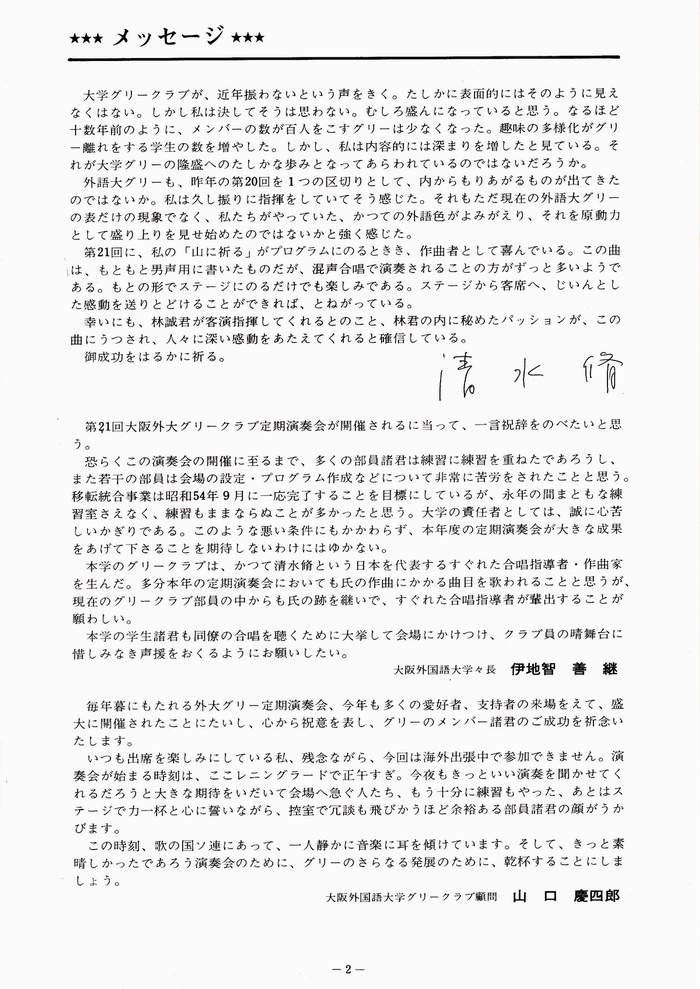 ★★★ メッセージ ★★★
大学グリークラブが、近年振わないという声をきく。たしかに表面的にはそのように見え
なくはない。しかし私は決してそうは思わない。むしろ盛んになっていると思う。なるほど
十数年前のように、メンバーの数が百人をこすグリーは少なくなった。趣味の多様化がグリ
ー離れをする学生の数を増やした。しかし、私は内容的には深まりを増したと見ている。そ
れが大学グリーの隆盛へのたしかな歩みとなってあらわれているのではないだろうか。
外語大グリーも、昨年の第20回を1つの区切りとして、内からもりあがるものが出てきた
のではないか。私は久し振りに指揮をしていてそう感じた。それもただ現在の外語大グリー
の表だけの現象でなく、私たちがやっていた、かつての外語色がよみがえり、それを原動力
として盛り上りを見せ始めたのではないかと強く感じた。
第21回に、私の「山に祈る」がプログラムにのるときき、作曲者として喜んでいる。この曲
は、もともと男声用に書いたものだが、混声合唱で演奏されることの方がずっと多いようで
ある。もとの形でステージにのるだけでも楽しみである。ステージから客席へ、じいんとし
た感動を送りとどけることができれば、とねがっている。
幸いにも、林誠君が客演指揮してくれるとのこと、林君の内に秘めたパッションが、この
曲にうつされ、人々に深い感動をあたえてくれると確信している。
御成功をはるかに祈る。
清水脩
第21回大阪外大グリークラブ定期演奏会が開催されるに当って、一言祝辞をのべたいと思
う。
恐らくこの演奏会の開催に至るまで、多くの部員諸君は練習に練習を重ねたであろうし、
また若干の部員は会場の設定・プログラム作成などについて非常に苦労をされたことと思う。
移転統合事業は昭和54年9月に一応完了することを目標にしているが、永年の間まともな練
習室さえなく、練習もままならぬことが多かったと思う。大学の責任者としては、誠に心苦
しいかぎりである。このような悪い条件にもかかわらず、本年度の定期演奏会が大きな成果
をあげて下さることを期待しないわけにはゆかない。
本学のグリークラブは、かつて清水脩という日本を代表するすぐれた合唱指導者・作曲家
を生んだ。多分本年の定期演奏会においても氏の作曲にかかる曲目を歌われることと思うが、
現在のグリークラブ部員の中からも氏の跡を継いで、すぐれた合唱指導者が輩出することが
願わしい。
本学の学生諸君も同僚の合唱を聴くために大挙して会場にかけつけ、クラブ員の晴舞台に
惜しみなき声援をおくるようにお願いしたい。
大阪外国語大学々長 伊地智 善 継
毎年暮にもたれる外大グリー定期演奏会、今年も多くの愛好者、支持者の来場をえて、盛
大に開催されたことにたいし、心から祝意を表し、グリーのメンバー諸君のご成功を祈念い
たします。
いつも出席を楽しみにしている私、残念ながら、今回は海外出張中で参加できません。演
奏会が始まる時刻は、ここレニングラードで正午すぎ。今夜もきっといい演奏を聞かせてく
れるだろうと大きな期待をいだいて会場へ急ぐ人たち、もう十分に練習もやった、あとはス
テージで力一杯と心に誓いながら、控室で冗談も飛びかうほど余裕ある部員諸君の顔がうか
びます。
この時刻、歌の国ソ連にあって、一人静かに音楽に耳を傾けています。そして、きっと素
晴しかったであろう演奏会のために、グリーのさらなる発展のために、乾杯することにしま
しょう。
大阪外国語大学グリークラブ顧問 山 口 慶四郎
－2－